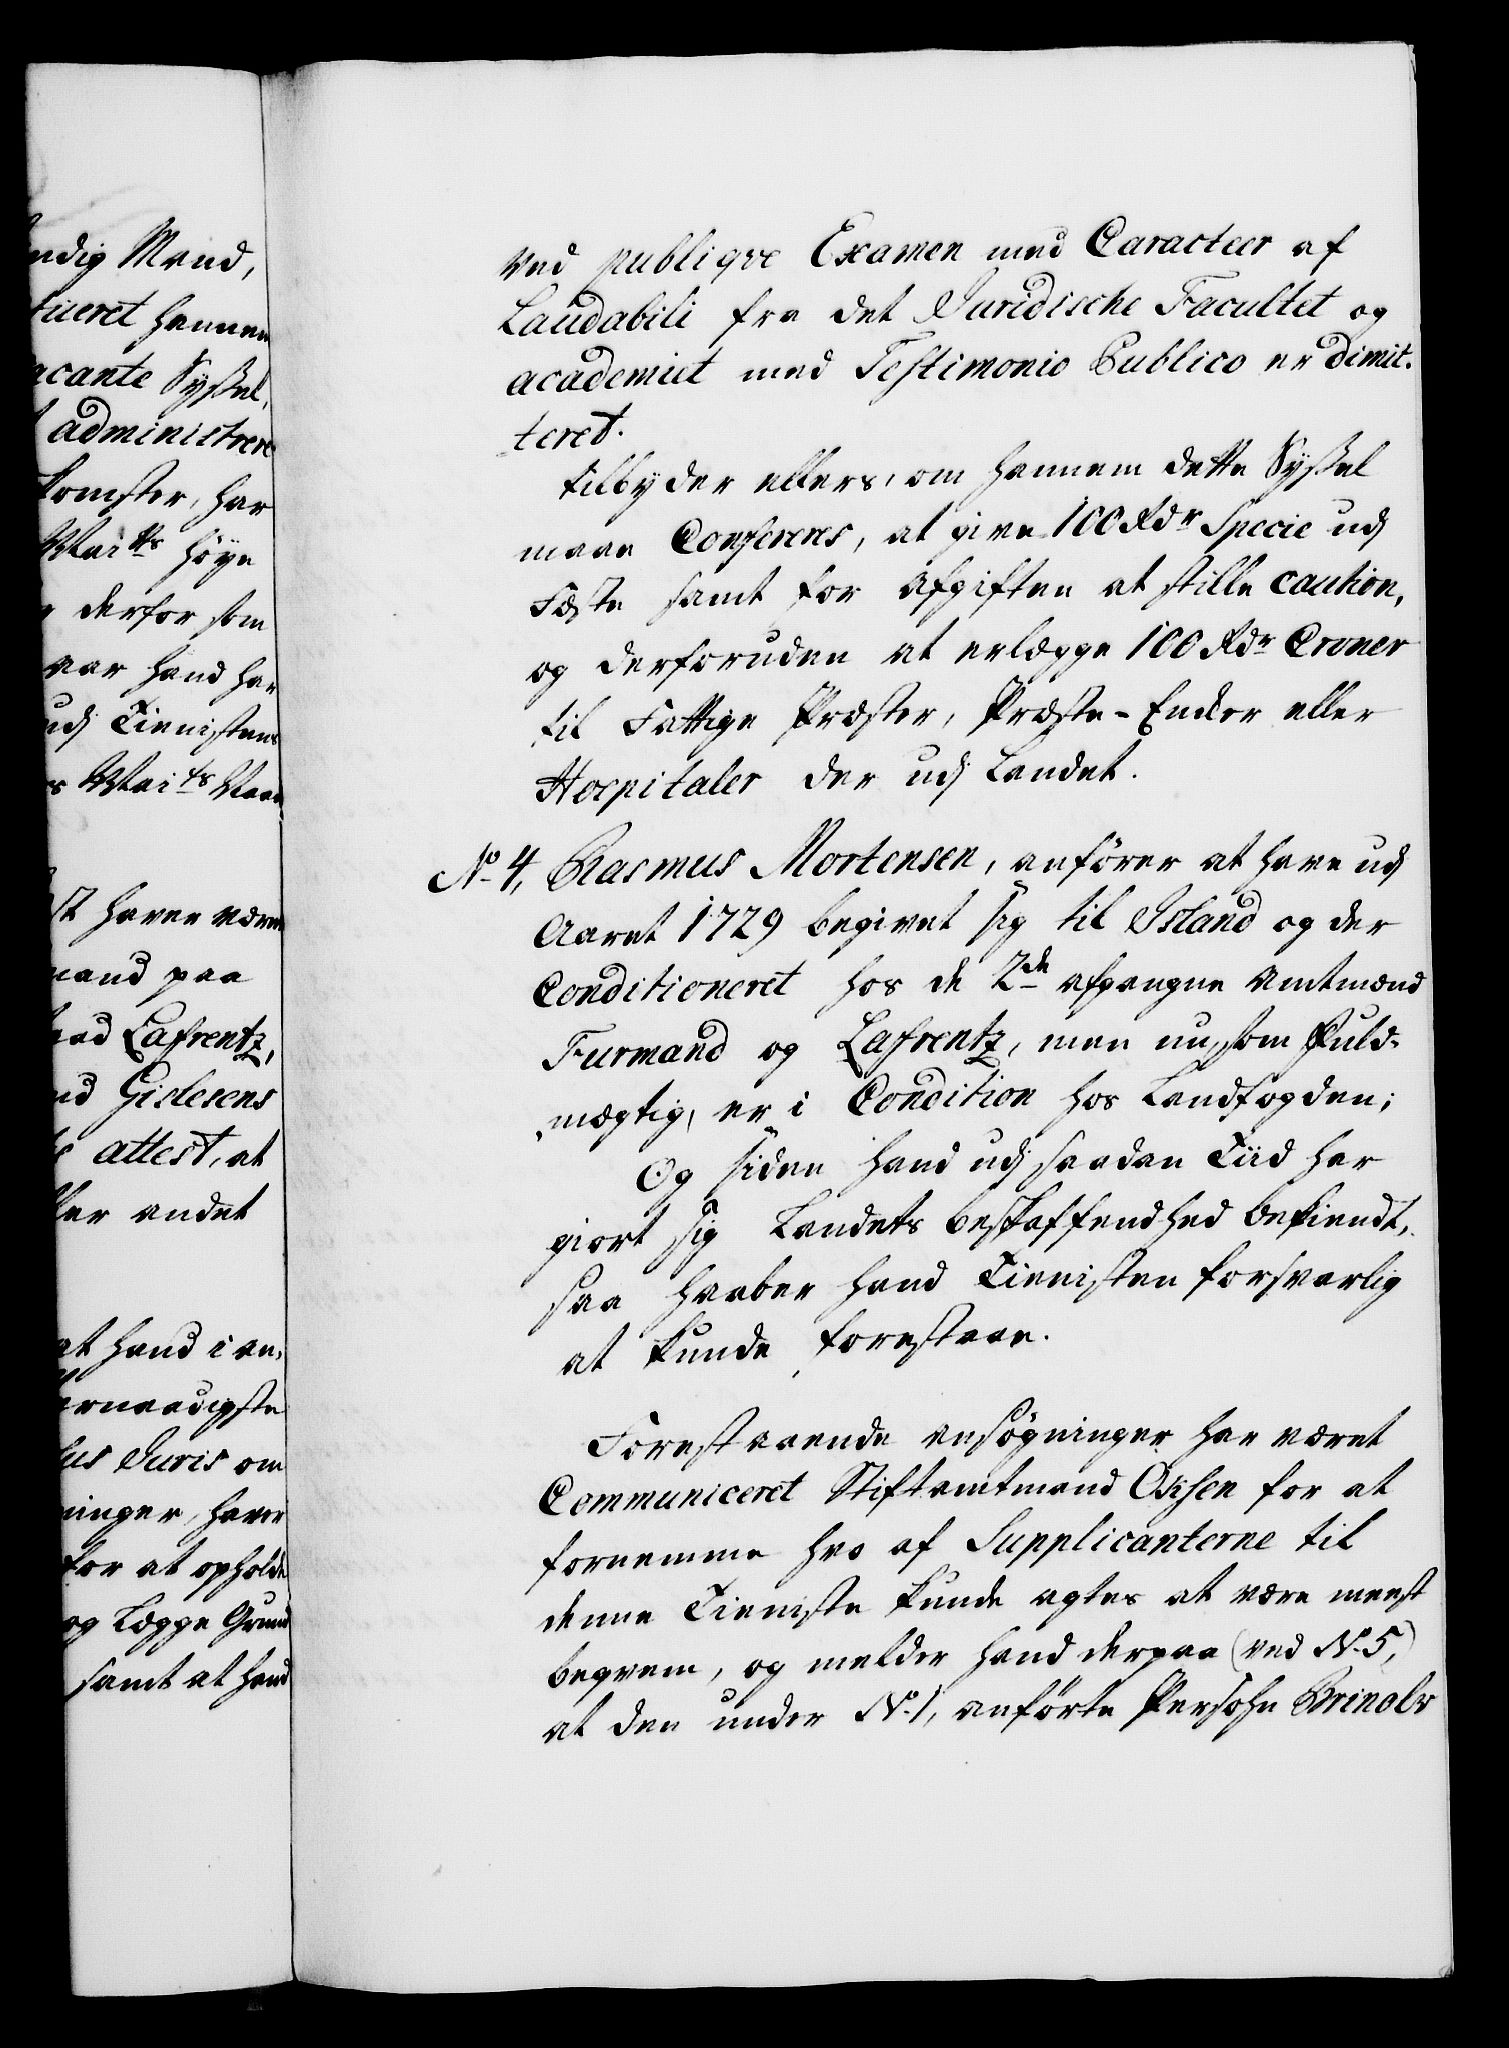 ndig Mand,
tueret hannem
acante Syssel,
administrere
komster, har
Maitts höye
derfor som
var hand har
udj Tienisten
s Maits Naad
st haver været
mand paa
Lafrentz,
nd Gislesens
attest, at
ler andet
at hand i an,
ernaadigste
us Juris om
ninger, haver
for at opholde
og Lægge Grund
samt at hand
ved publiqve Examen med Caracteer af
Laudabili fra det Juridische Facultet og
academiet med Testimonio Publico er dimit-
teret.
tilbyder ellers, om hannem dette Syssel
maae Confereres, at give 100 Rdr Specie udj
Fæste samt for Afgiften at stille caution,
og derforuden at erlægge 100 Rdr Croner
til Fattige Præster, Præste-Enker eller
Hospitaler der udj Landet.
No 4, Rasmus Mortensen, anförer at have udj
Aaret 1729 begivet sig til Island og der
Conditioneret hos de 2de afgangne Amtmænd
Furmand og Lafrentz, men nu, som Fuld-
mægtig, er i Condition hos Landfogden;
Og siden hand udj saadan Tiid har
giort sig Landets beskaffendhed bekiendt,
saa haaber hand Tienisten forsvarlig
at kunde forestaae.
Forestaaende ansögninger har været
Communiceret Stiftamtmand Ochsen for at
fornemme hvo af Supplicanterne til
denne Tieniste kunde agtes at være meest
beqvem, og melder hand derpaa (ved No 5,)
at den under No 1, anförte Persohn Brinolv